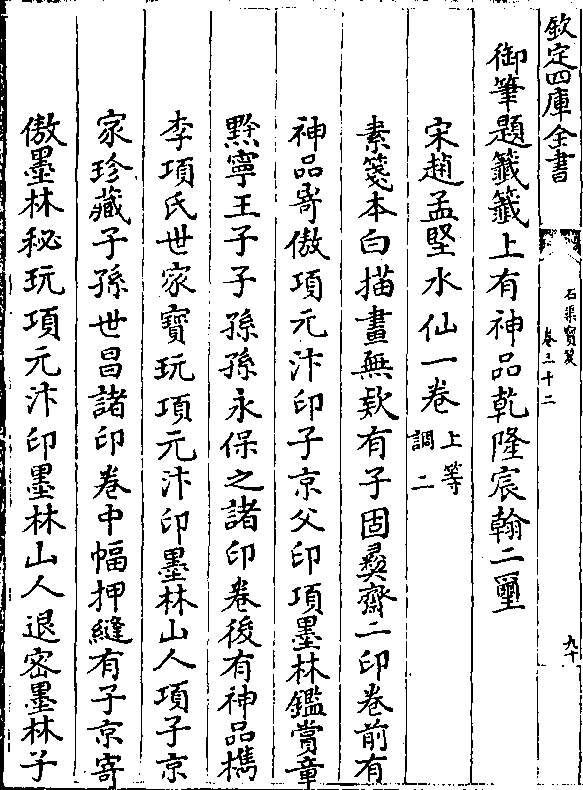 欽定四庫全書
石渠寶笈
卷三十二
九十
御筆題籤籤上有神品乾隆宸翰二璽
宋趙孟堅水仙一卷上等
調二
素箋本白描畫無欵有子固彝齋二印卷前有
神品寄傲項元汴印子京父印項墨林鑑賞章
黔寧王子子孫孫永保之諸印卷後有神品檇
李項氏世家寶玩項元汴印墨林山人項子京
家珍藏子孫世昌諸印卷中幅押縫有子京寄
傲墨林秘玩項元汴印墨林山人退密墨林子